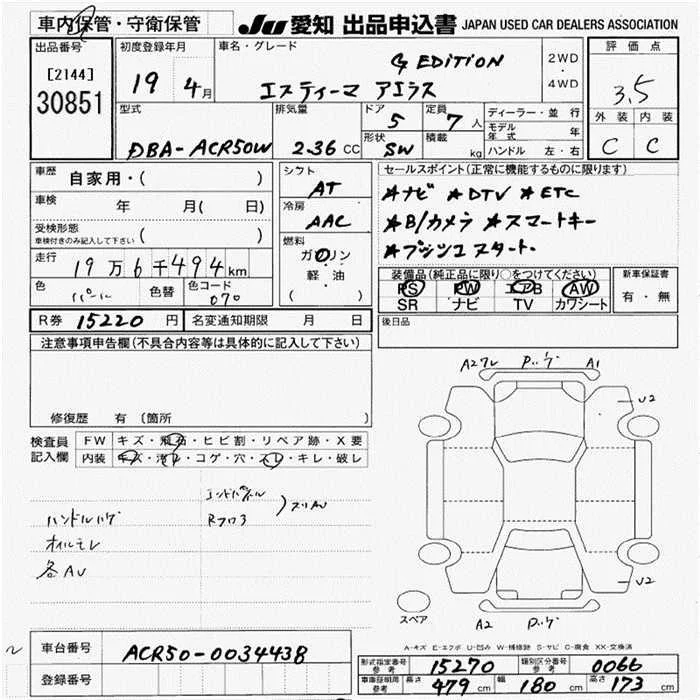 車内保管・守衛保管
JU 愛知 出品申込書 JAPAN USED CAR DEALERS ASSOCIATION
出品番号
[2144]
30851
初度登録年月
19 4月
車名・グレード
G EDITION
エスティーマ アエラス
2WD
・
4WD
評価点
3.5
外装 内装
C C
型式
DBA-ACR50W
排気量
2.36 CC
ドア
5
形状
SW
定員
7人
積載
kg
ディーラー・並行
モデル年式 年
ハンドル 左・右
車歴
自家用・( )
車検
年 月( 日)
受検形態
車検付きのみ記入して下さい ( )
走行
19万6千494km
色
パール
色替
色コード
070
シフト
AT
冷房
AAC
燃料
ガソリン
・
軽・油
( )
セールスポイント(正常に機能するものに限ります)
★ナビ ★DTV ★ETC
★B/カメラ ★スマートキー
★プッシュスタート
装備品(純正品に限り○をつけてください)
PS PW エアB AW
SR ナビ TV カワシート
新車保証書
有・無
R券 15220 円 名変通知期限 月 日
後日品
注意事項申告欄(不具合内容等は具体的に記入して下さい)
修復歴 有(箇所 )
検査員記入欄
FW キズ・飛石・ヒビ割・リペア跡・X要
内装 キズ・汚レ・コゲ・穴・スレ・キレ・破レ
ハンドルハゲ
オイルモレ
各AU
エンドパネル
Rフロア
A2 A1
U2
U2
A2
スペア
A-キズ E-エクボ U-凹み W-補修跡 S-サビ C-腐食 XX-交換済
車台番号 ACR50-0034438
登録番号
形式指定番号 参考 15270 類別区分番号 参考 0066
車庫証明用 参考 長さ 479 cm 幅 180 cm 高さ 173 cm